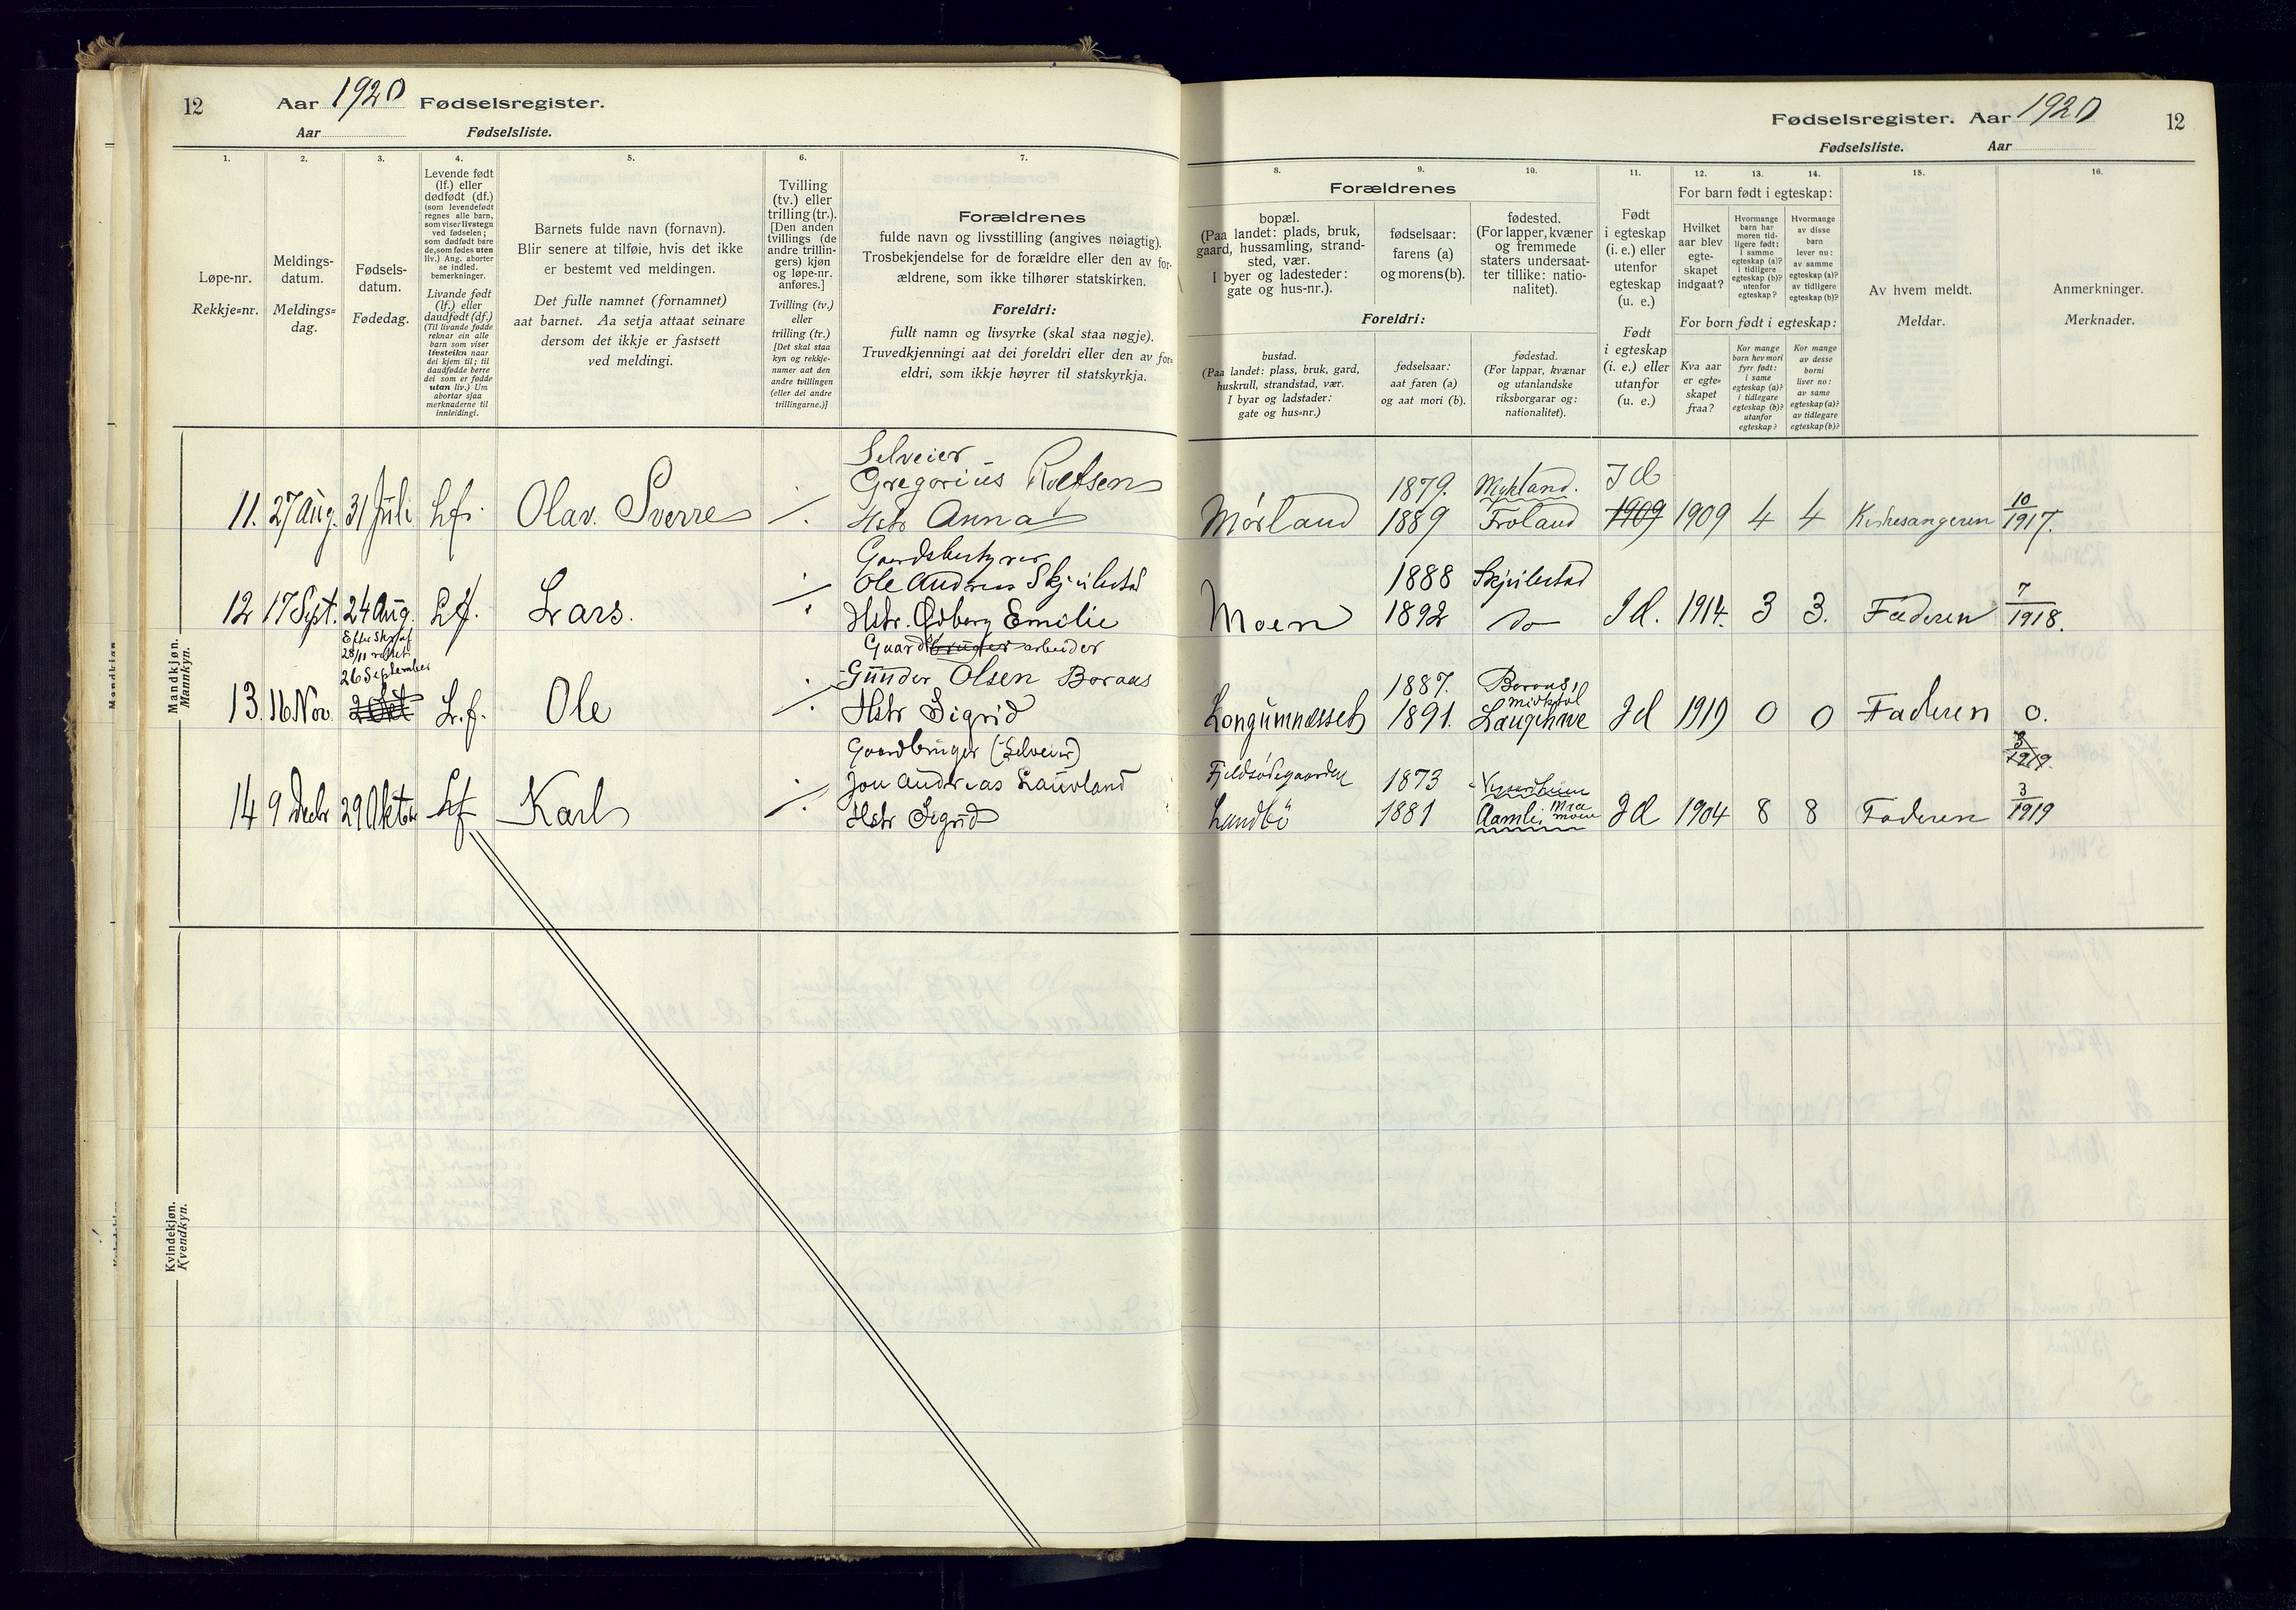 12
Aar 1920 Fødselsregister.
Aar Fødselsliste.
1.
2.
3.
4.
5.
6.
7.
Løpe-nr.
Rekkje=nr.
Meldings-
datum.
Meldings=
dag.
Fødsels-
datum.
Fødedag.
Levende født
(lf.) eller
dødfødt (df.)
(som levendefødt
regnes alle barn,
som viser livstegn
ved fødselen;
som dødfødt bare
de, som fødes uten
liv.) Ang. aborter
se indled.
bemerkninger.
Livande født
(lf.) eller
daudfødt (df.)
(Til livande fødde
reknar ein alle
barn som viser
livsteikn naar
dei kjem til; til
daudfødde berre
dei som er fødde
utan liv.) Um
abortar sjaa
merknaderne til
innleidingi.
Barnets fulde navn (fornavn).
Blir senere at tilføie, hvis det ikke
er bestemt ved meldingen.
Det fulle namnet (fornamnet)
aat barnet. Aa setja attaat seinare
dersom det ikkje er fastsett
ved meldingi.
Tvilling
(tv.) eller
trilling (tr.).
[Den anden
tvillings (de
andre trillin-
gers) kjøn
og løpe-nr.
anføres.]
Tvilling (tv.)
eller
trilling (tr.)
[Det skal staa
kyn og rekkje-
numer aat den
andre tvillingen
(eller dei andre
trillingarne.)]
Forældrenes
fulde navn og livsstilling (angives nøiagtig).
Trosbekjendelse for de forældre eller den av for-
ældrene, som ikke tilhører statskirken.
Foreldri:
fullt namn og livsyrke (skal staa nøgje).
Truvedkjenningi aat dei foreldri eller den av for-
eldri, som ikkje høyrer til statskyrkja.
Mandkjøn.
Mannkyn.
11. 27 Aug. 31 Juli Lf. Olav. Sverre
Selveier
Gregorius Roelsen
Hstr Anna
12 17 Sept. 24 Aug. Lf. Lars.
Gaardsbestyrer
Ole Andreas Skjeilestad
Hstr. Emilie
13. 16 Nov. 2 Okt L.f. Ole
28/11 rettet
26 September
Gaardbruger arbeider
Gunder Olsen Boraas
Hstr Sigrid
14 9 Decbr 29 Oktobr Lf Karl
Gaardbruger (Selveier)
Jon Andreas Laurland
Hstr Sigrid
Kvindekjøn.
Kvendkyn.
Fødselsregister. Aar 1920
12
Fødselsliste. Aar
8.
9.
10.
11.
12.
13.
14.
15.
16.
Forældrenes
bopæl.
(Paa landet: plads, bruk,
gaard, hussamling, strand-
sted, vær.
I byer og ladesteder:
gate og hus-nr.).
fødselsaar:
farens (a)
og morens (b).
fødested.
(For lapper, kvæner
og fremmede
staters undersaat-
ter tillike: natio-
nalitet).
Foreldri:
bustad.
(Paa landet: plass, bruk, gard,
huskrull, strandstad, vær.
I byar og ladstader:
gate og hus=nr.)
fødselsaar:
aat faren (a)
og aat mori (b).
fødestad.
(For lappar, kvænar
og utanlandske
riksborgarar og:
nationalitet).
Født
i egteskap
(i. e.) eller
utenfor
egteskap
(u. e.)
Født
i egteskap
(i. e.) eller
utanfor
(u. e.)
For barn født i egteskap:
Hvilket
aar blev
egte-
skapet
indgaat?
Hvormange
barn har
moren tid-
ligere født:
i samme
egteskap (a)?
i tidligere
egteskap (b)?
utenfor
egteskap?
Hvormange
av disse
barn
lever nu:
av samme
egteskap (a)?
av tidligere
egteskap (b)?
For born født i egteskap:
Kva aar
er egte=
skapet
fraa?
Kor mange
born hev mori
fyrr født:
i same
egteskap (a)?
i tidlegare
egteskap (b)?
utanfor
egteskap?
Kor mange
av desse
borni
liver no:
av same
egteskap (a)?
av tidlegare
egteskap (b)?
Av hvem meldt.
Meldar.
Anmerkninger.
Merknader.
Mørland
1879. Mykland.
1889 Froland
I E
1909
1909 4 4 Kirkesangeren 10/1917.
Moen
1888 Skjeilestad
1892 do
I E. 1914. 3 3. Faderen 7/1918.
Longumnesset
1887. Boraas,
1891.
I E 1919 0 0 Faderen 0.
3/1919.
Landbö
1873 Vegaardsheien
1881 Aamli
I E 1904 8 8 Faderen 3/1919